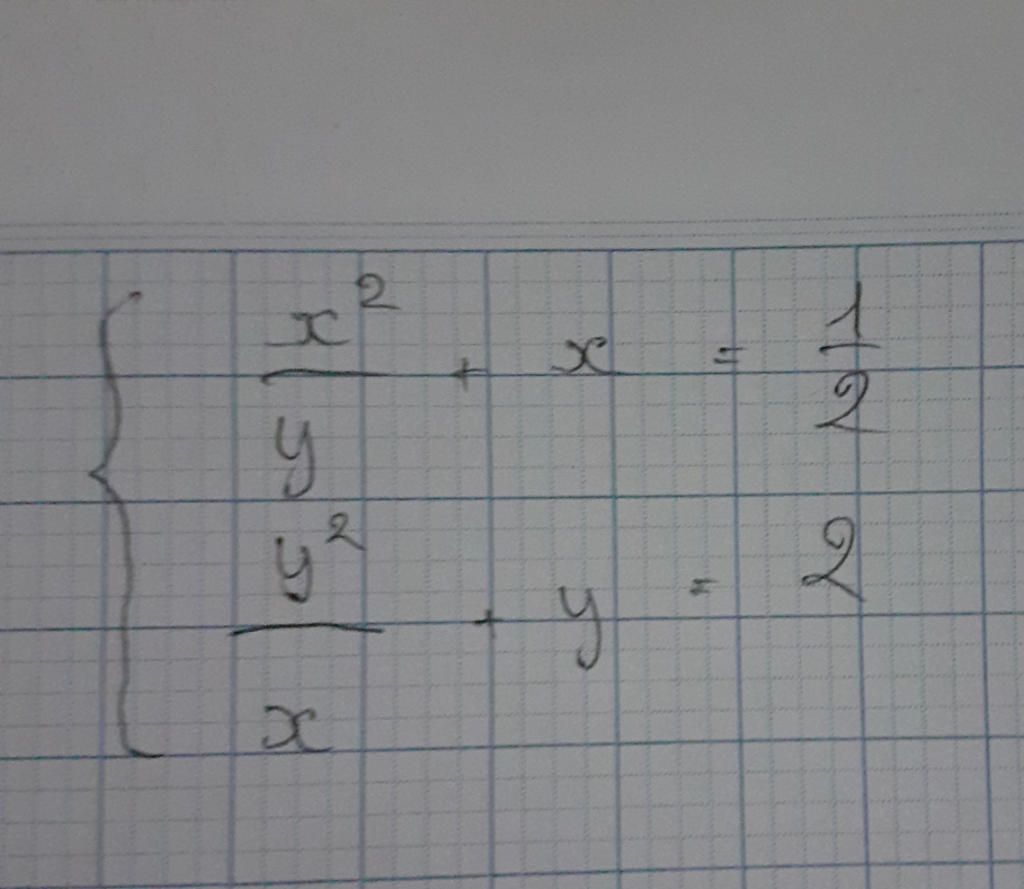 x²/y + x = 1/2
y²/x + y = 2